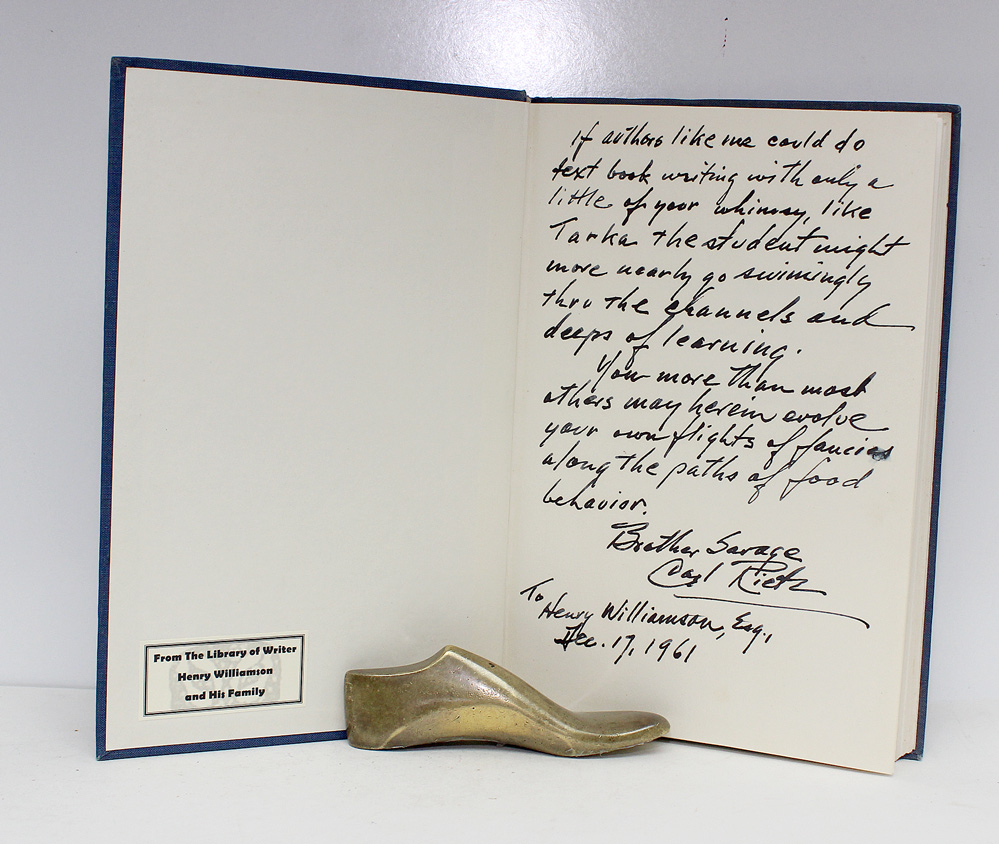 From The Library of Writer
Henry Williamson
and His Family
If authors like me could do
text book writing with only a
little of your whimsy, like
Tarka the student might
more nearly go swimingly
thru the channels and
deeps of learning.
You more than most
others may herein evolve
your own flights of fancies
along the paths of food
behavior.
Brother Savage
Carl Rietz
To
Henry Williamson, Esq.,
Dec. 17, 1961